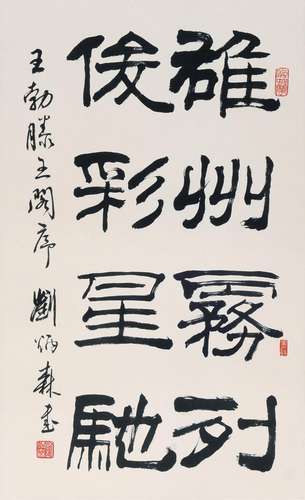 雄州霧列
俊彩星馳
王勃滕王閣序 劉炳森書